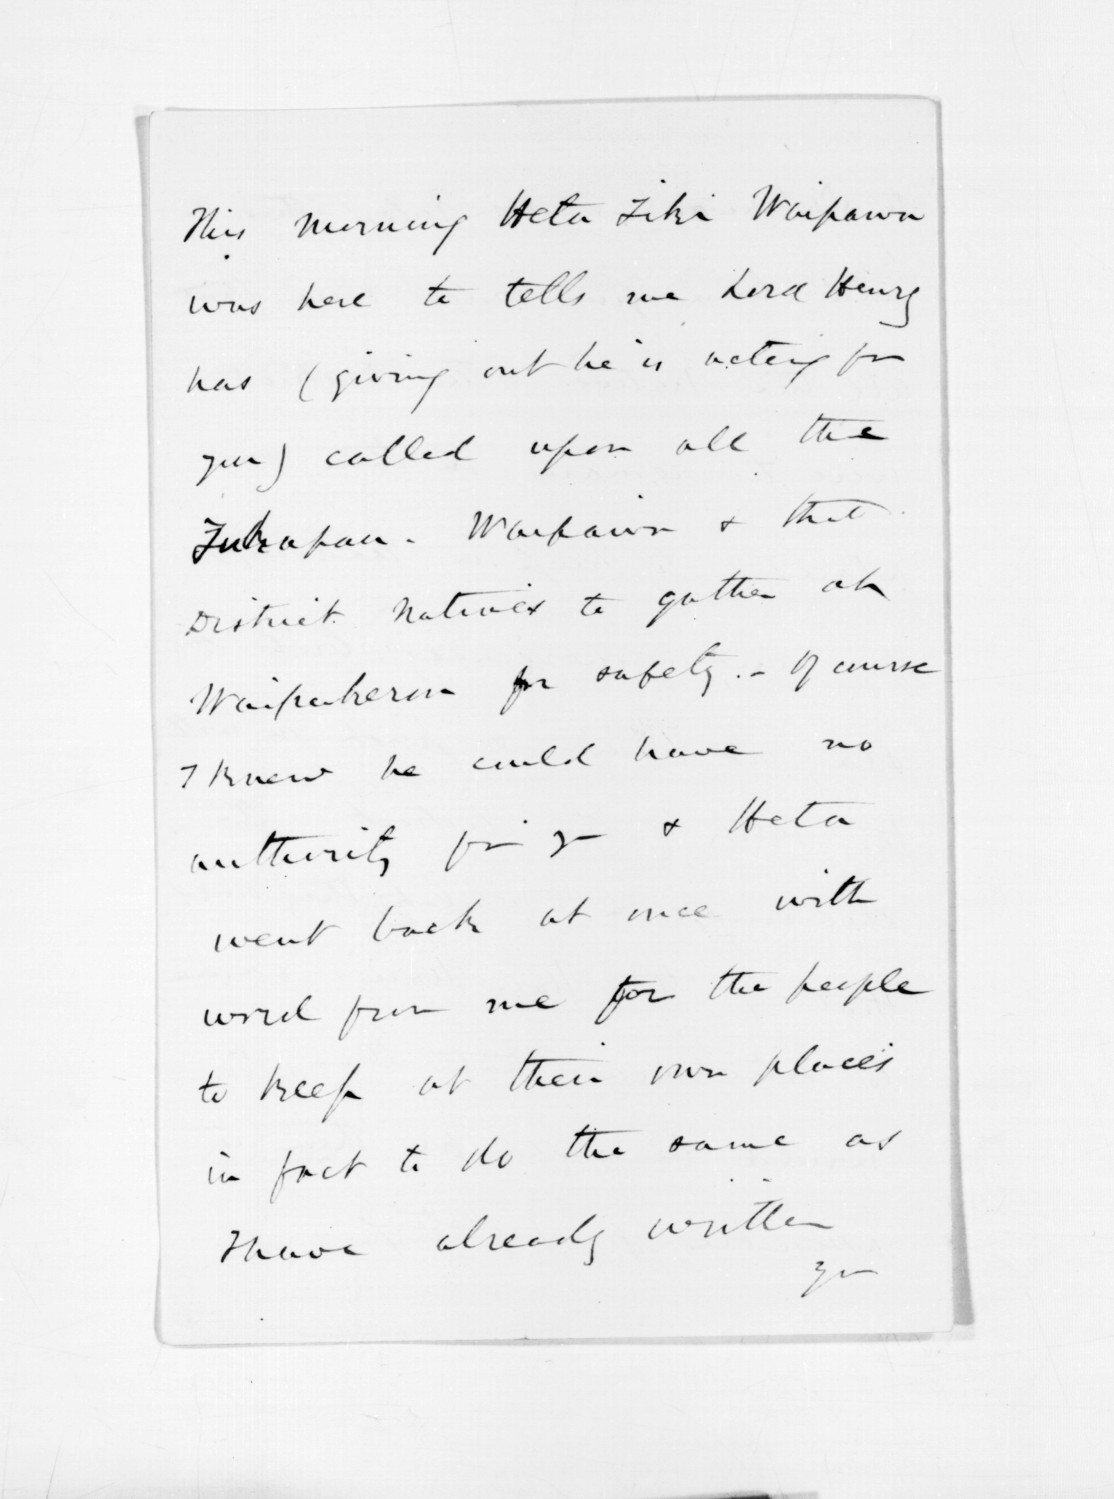 This morning Heta Tiki Waipawa
was here to tells me Lord Henry
has (giving out he is acting for
you) called upon all the
Takapau - Waipawa & that
District Natives to gather at
Waipukurau for safety. - Of course
I knew he could have no
authority from you & Heta
went back at once with
word from me for the people
to keep at their own places
in fact to do the same as
I have already written
you